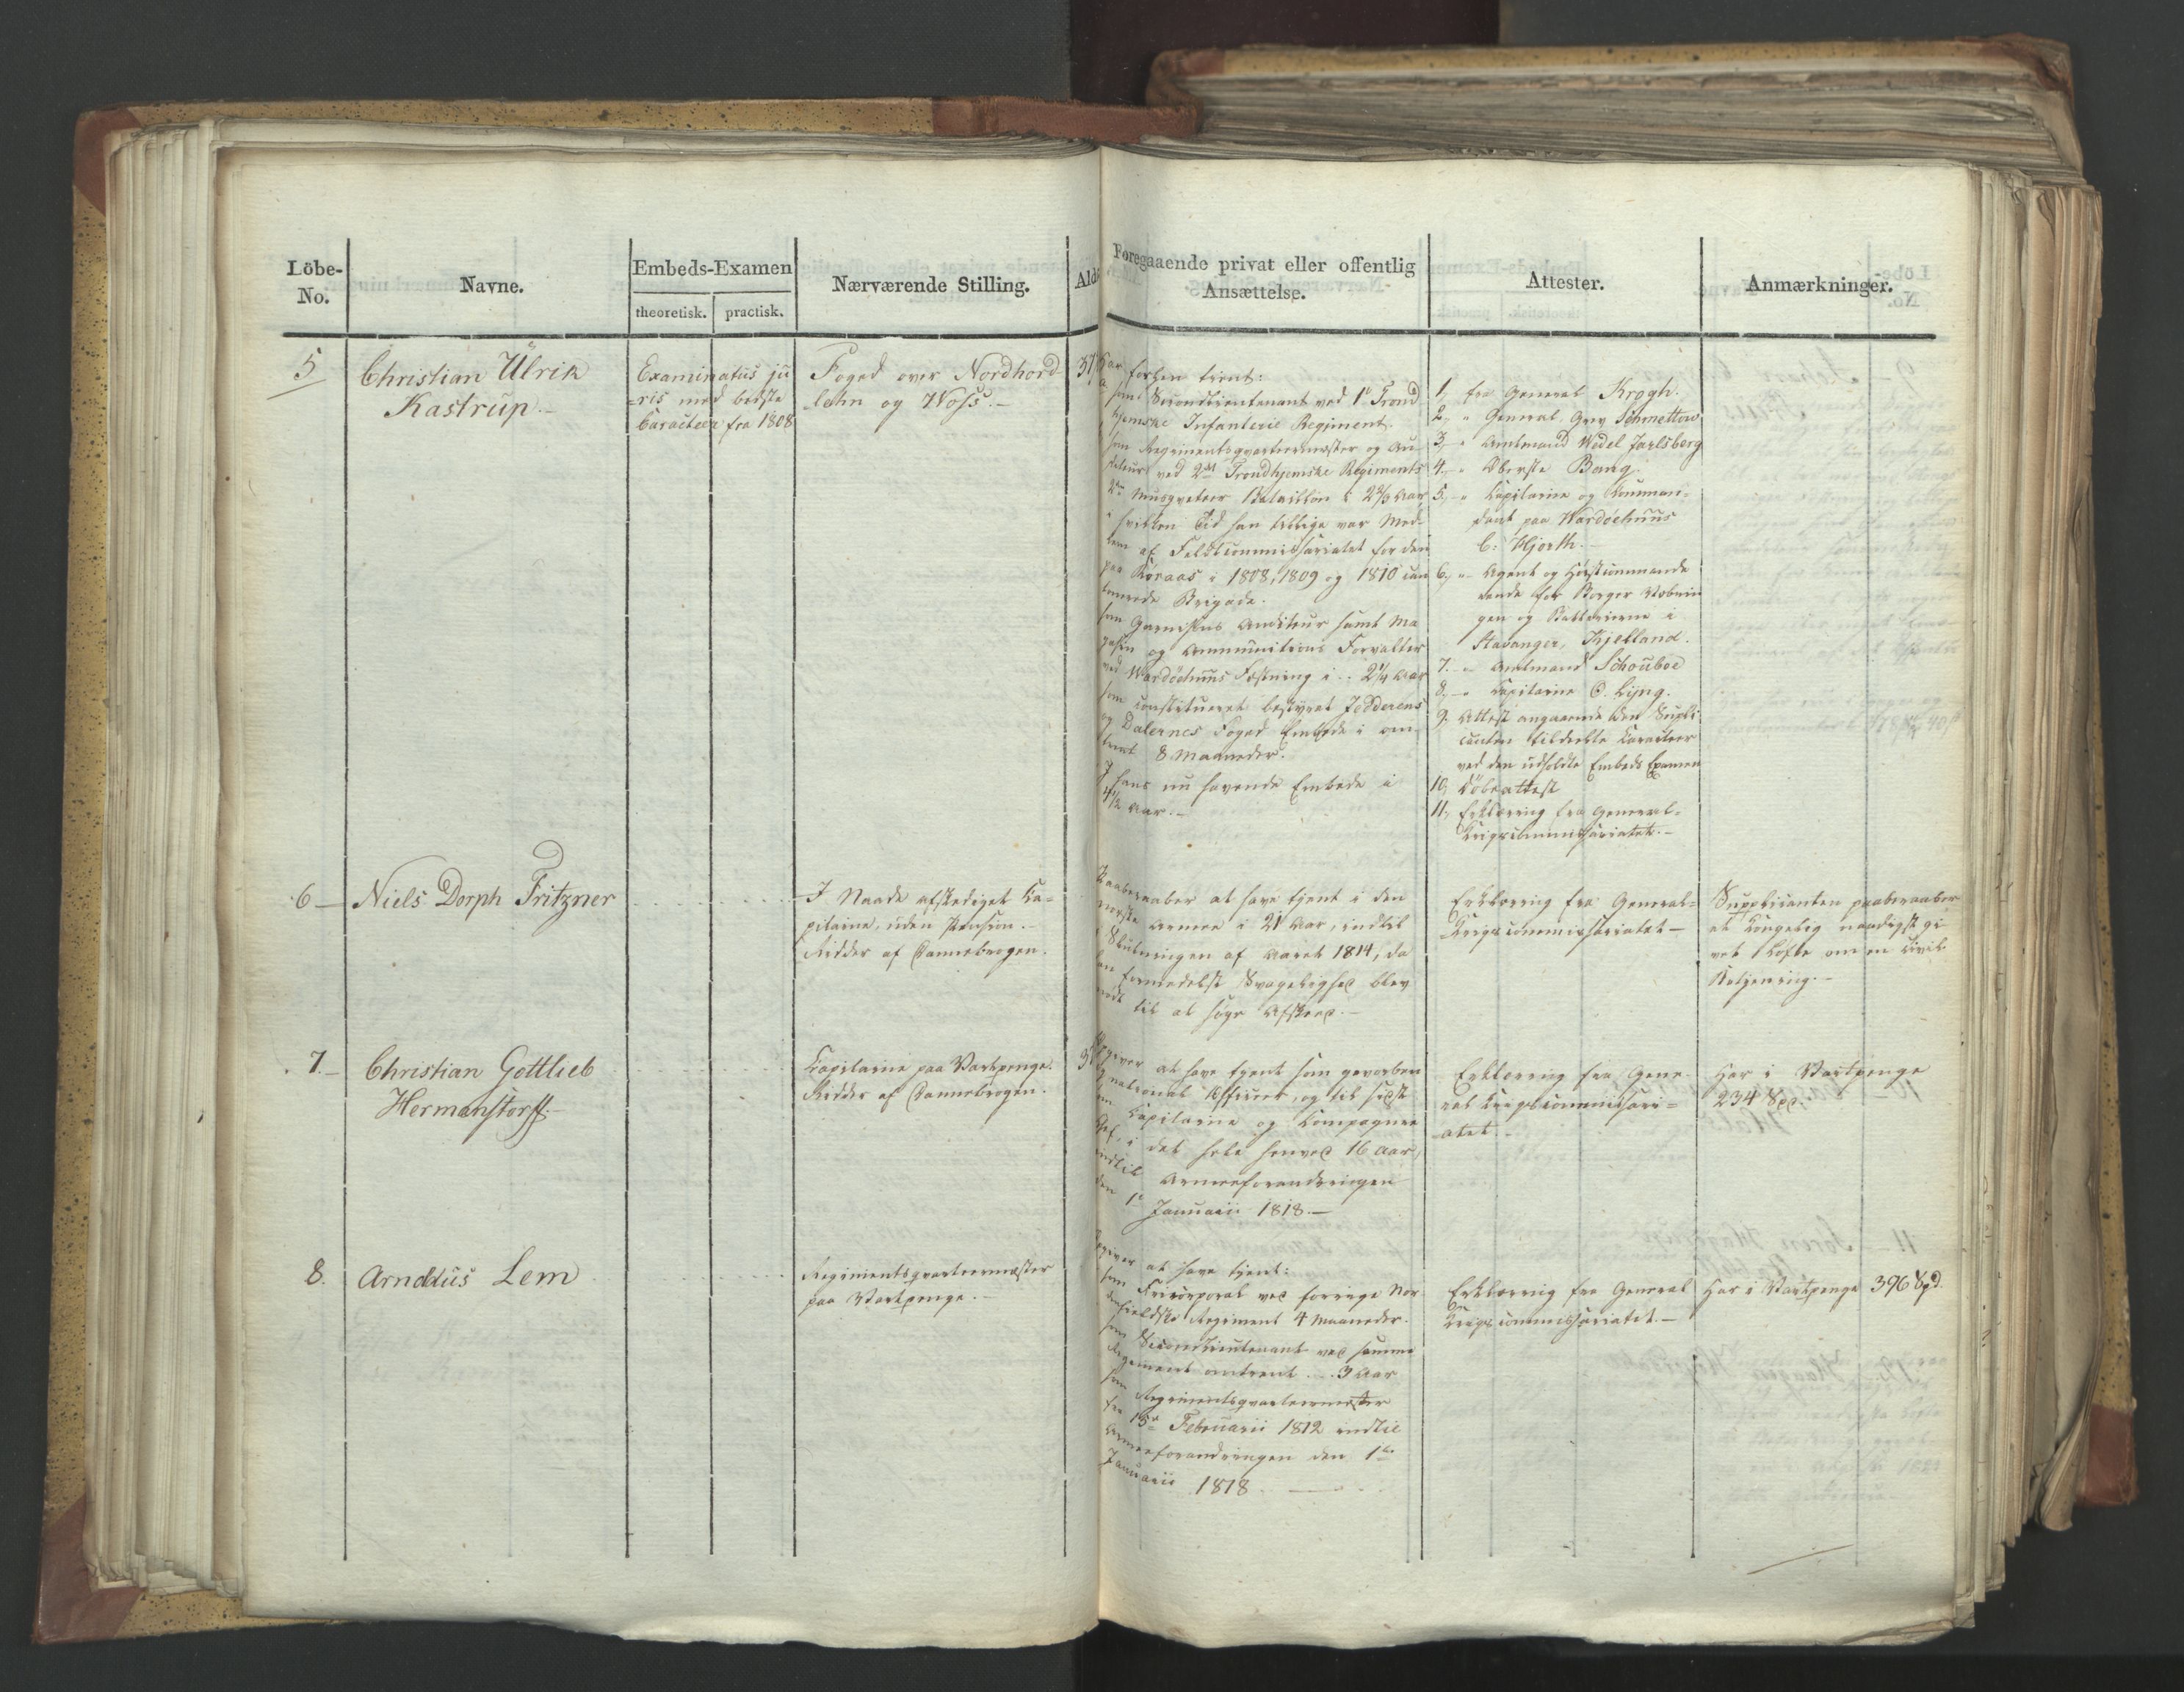 Löbe-
No.
Navne.
Embeds-Examen
theoretisk. practisk.
Nærværende Stilling.
Ald
Foregaaende privat eller offentlig
Ansættelse.
Attester.
Anmærkninger.
5
Christian Ulrik
Kastrup.-
Examinatus ju
=ris med bedste
Caracteer fra 1808
Foged over Nordhord
lehn og Woss.-
37
Har forhen tient:
som Secondlieutenant ved 1e Trond
hjemske Infanterie Regiment.
som Regimentsqvarteermester og Au-
diteur ved 2det Trondhjemske Regiments
2den Musqveteer Bataillon i 2 2/3 Aar
i hvilken Tid han tillige var Med-
lem af Feltcommissariatet for den
paa Röraas i 1808, 1809 og 1810 can
tonnerede Brigade.
som Garnisons Auditeur samt Ma
gasin og Ammunitions Forvalter
ved Wardöehuus Fæstning i .. 2 1/4 Aar
som constitueret bestyret Jedderens
og Dalernes Foged Embede i om-
trent 8 Maaneder.
I hans nu havende Embede i
4 1/2 Aar.-
1, fra General Krogh.
2, " General, Grev Schmettow
3, " Amtmand Wedel Jarlsberg
4, " Oberste Bang.
5, " Capitaine og Comman-
dant paa Wardöehuus
C: Hjorth.-
6, " Agent og Höistcommande
rende for Borger Væbnin
gen og Batterierne i
Stavanger, Kjelland.
7. " Amtmand Schouboe
8, " Capitaine C. Lyng.
9. Attest angaaende den Suppli
canten tildeelte Caracteer
ved den udholdte Embeds Examen
10, Döbeattest
11, Erklæring fra General-
Krigscommissariatet.-
6 Niels Dorph Fritzner
I Naade afskediget Ca-
pitaine, uden Pension.-
Ridder af Dannebrogen.
Paaberaaber at have tjent i den
norske Armee i 21 Aar, indtil
Slutningen af Aaret 1814, da
han formedelst Svagelighed blev
nødt til at søge Afskeed.-
Erklæring fra General=
Krigscommissariatet-
Supplicanten paaberaaber
et Kongelig naadigst gi
vet Löfte om en civil
Betjening.-
7. Christian Gottlieb
Hermanstorff.-
Capitaine paa Vartpenge.
Ridder af Dannebrogen.
3
Opgiver at have tjent som gevorben
og national Officeer, og til sidst
som Capitaine og Compagnie
Chef, i det hele henved 16 Aar,
indtil Armeeforandringen
den 1e Januarii 1818.-
Erklæring fra Gene-
ral Krigscommissari=
atet.-
Har i Vartpenge
234 Spd.
8. Arnoldus Lem
Regimentsqvarteermester
paa Vartpenge.-
Opgiver at have tjent:
som Fricorporal ved forrige Nor
denfieldske Regiment 4 Maaneder.
som Secondlieutenant ved samme
Regiment omtrent ... 3 Aar
som Regimentsqvarteermester
fra 15de Februarii 1812 indtil
Armeeforandringen den 1te
Januarii 1818.
Erklæring fra General
Krigscommissariatet.-
Har i Vartpenge 396 Spd.